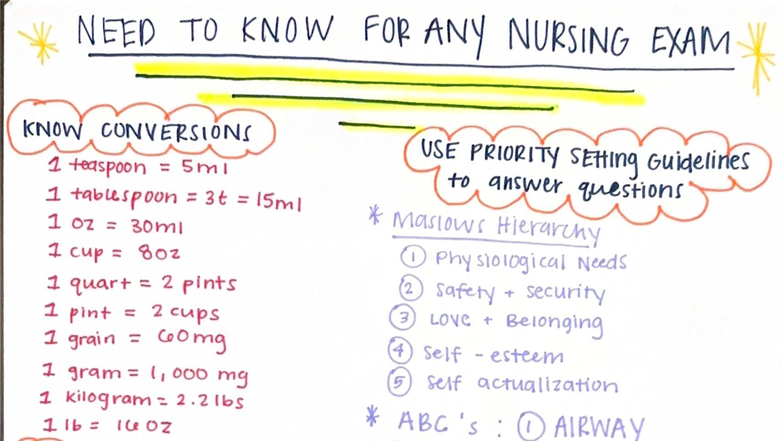 NEED TO KNOW FOR ANY NURSING EXAM
KNOW CONVERSIONS
1 teaspoon = 5ml
1 tablespoon = 3t = 15ml
1 oz = 30ml
1 cup = 8oz
1 quart = 2 pints
1 pint = 2 cups
1 grain = 60mg
1 gram = 1,000 mg
1 kilogram = 2.2lbs
1 lb = 16oz
USE PRIORITY SETTING GUIDELINES
to answer questions
* Maslows Hierarchy
① Physiological Needs
② Safety + Security
③ Love + Belonging
④ Self-esteem
⑤ Self actualization
* ABC's: ① AIRWAY